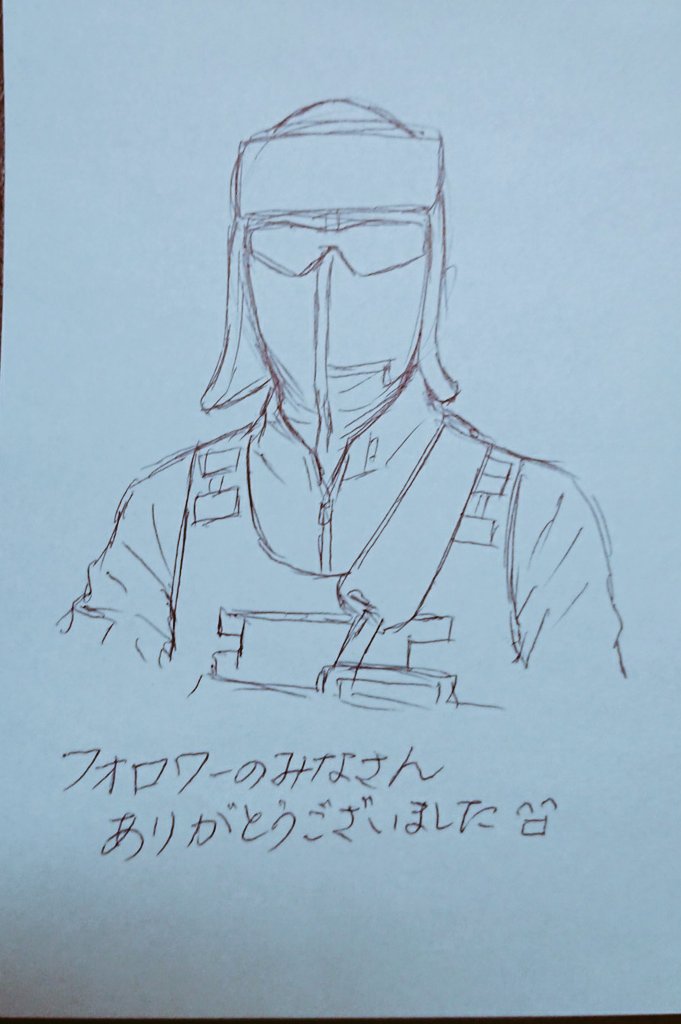 フォロワーのみなさん
ありがとうございました ^^